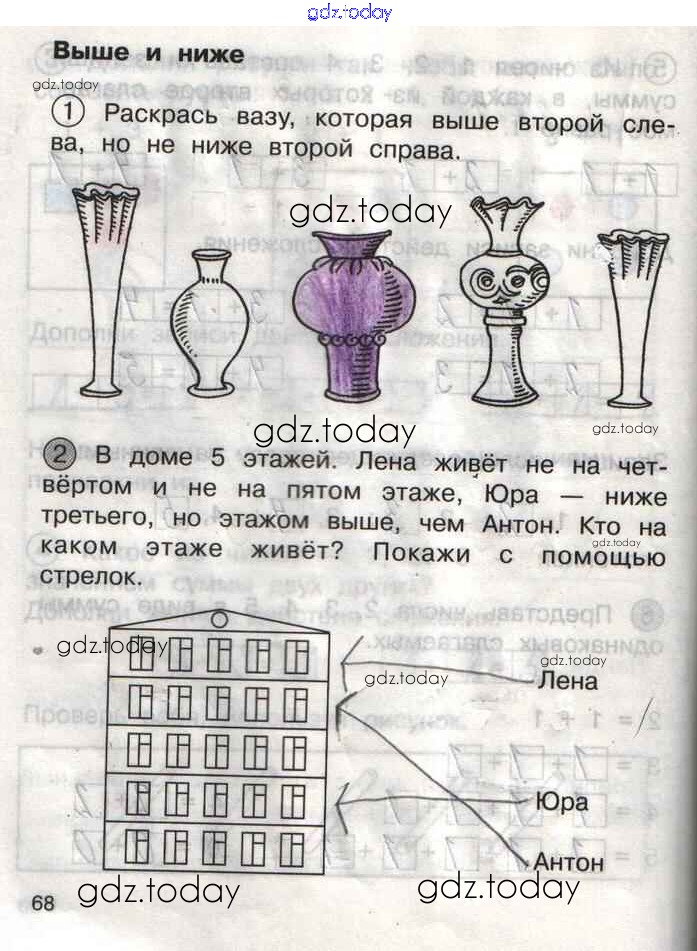 gdz.today
Выше и ниже
gdz.today
1 Раскрась вазу, которая выше второй сле-
ва, но не ниже второй справа.
gdz.today
gdz.today
gdz.today
2 В доме 5 этажей. Лена живёт не на чет-
вёртом и не на пятом этаже, Юра — ниже
третьего, но этажом выше, чем Антон. Кто на
каком этаже живёт? Покажи с помощью
gdz.today
стрелок.
gdz.today
gdz.today
gdz.today
Лена
Юра
Антон
gdz.today
gdz.today
68